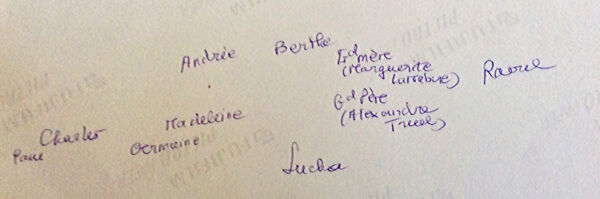 Andrée Berthe Gd mère
(Marguerite
Larrebure) Raoul
Charles Madeleine Gd Père
(Alexandre
Paul Germaine
Sucha
FUJIFILM